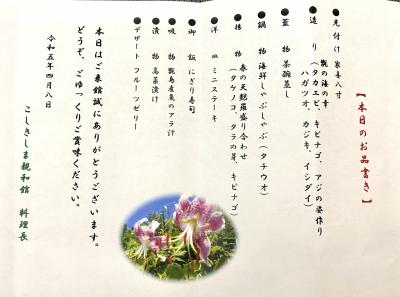 【本日のお品書き】
●先付け 家喜八寸
●造り 甑の海の幸
(タカエビ、キビナゴ、アジの姿作り
ハガツオ、カジキ、イシダイ)
●蓋物 茶碗蒸し
●鍋物 海鮮しゃぶしゃぶ(タチウオ)
●揚物 春の天麩羅盛り合わせ
(タケノコ、タラの芽、キビナゴ)
●洋皿 ミニステーキ
●御飯 にぎり寿司
●吸物 甑島産魚のアラ汁
●漬物 高菜漬け
●デザート フルーツゼリー
本日はご来館誠にありがとうございます。
どうぞ、ごゆっくりご賞味ください。
令和五年四月八日
こしきしま親和館 料理長